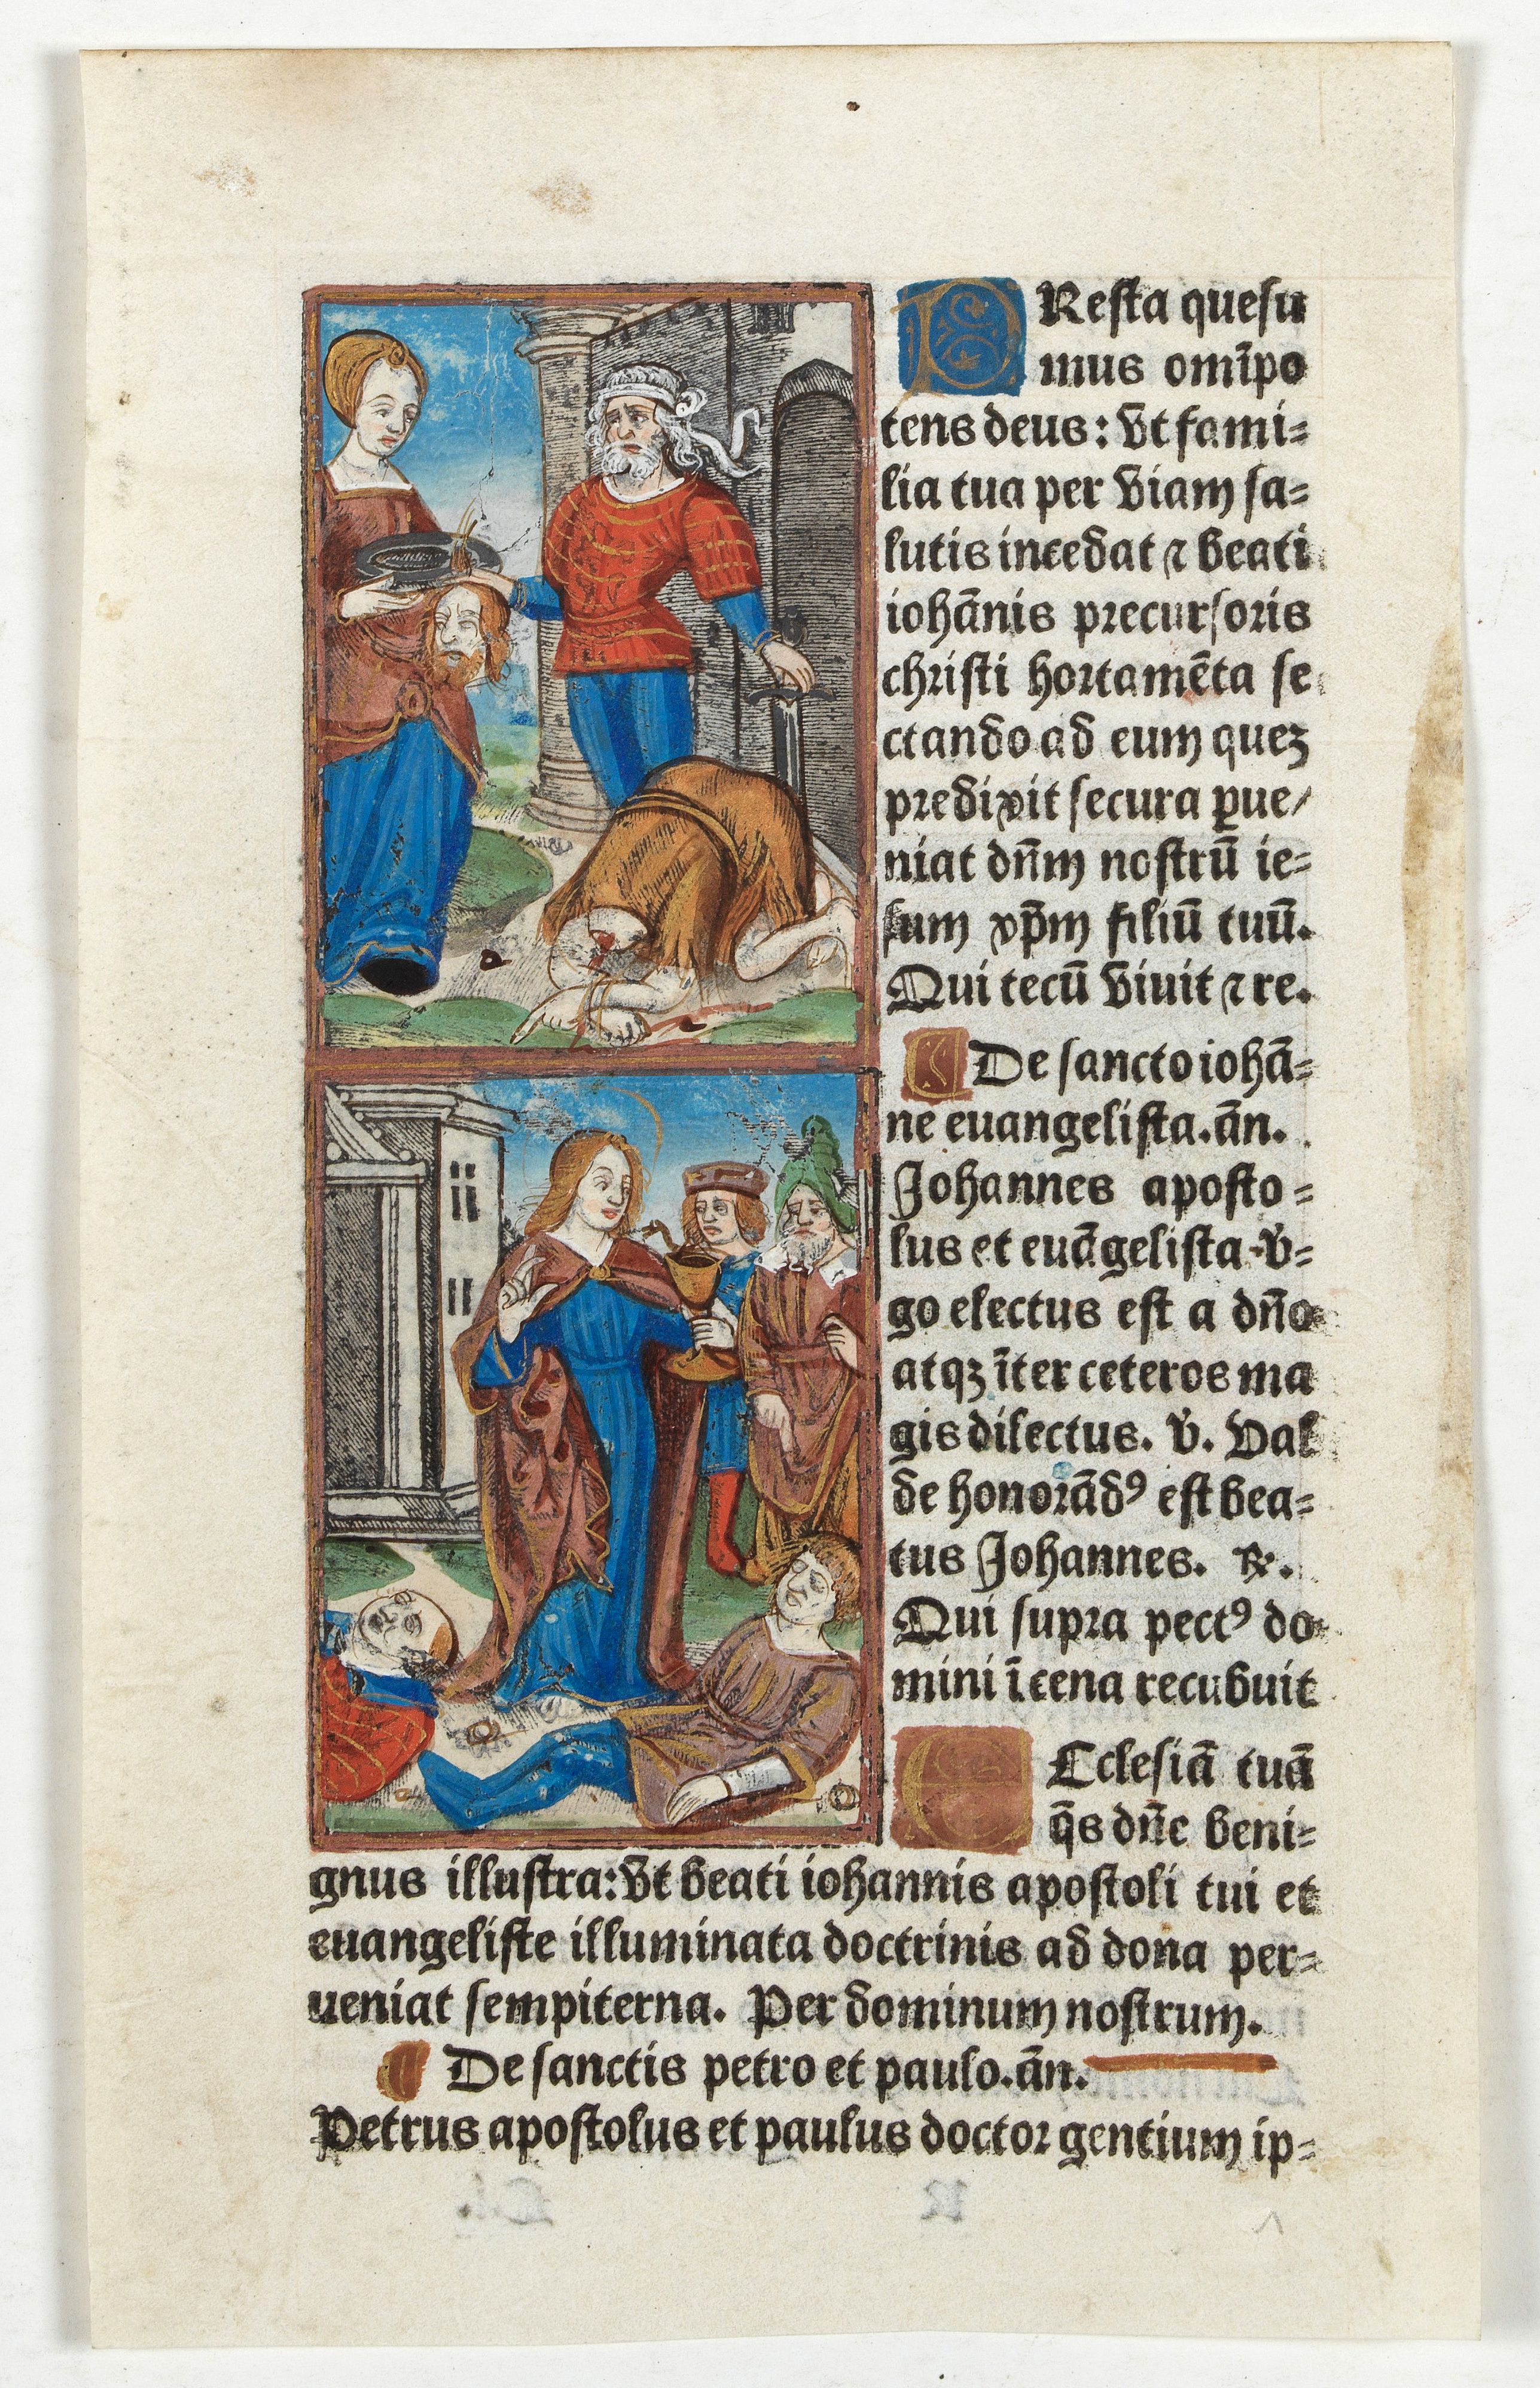 PResta quesu
mus omīpo
tens deus: vt fami=
lia tua per viam sa=
lutis incedat ⁊ beati
iohānis precursoris
christi hortamēta se
ctando ad eum queꝫ
predixit secura ꝑue/
niat dn̄m nostrū ie=
sum xp̄m filiū tuū.
Qui tecū viuit ⁊ re.
De sancto iohā=
ne euangelista. ān.
Johannes aposto=
lus et euāgelista v̄=
go electus est a dn̄o
atqꝫ īter ceteros ma
gis dilectus. v̄. Val
de honorādꝰ est bea=
tus Johannes. ℟.
Qui supra pectꝰ do
mini ī cena recubuit
ECclesiā tuā
q̄s dn̄e beni=
gnus illustra: vt beati iohannis apostoli tui et
euangeliste illuminata doctrinis ad dona per=
ueniat sempiterna. Per dominum nostrum.
De sanctis petro et paulo. ān.
Petrus apostolus et paulus doctor gentium ip=